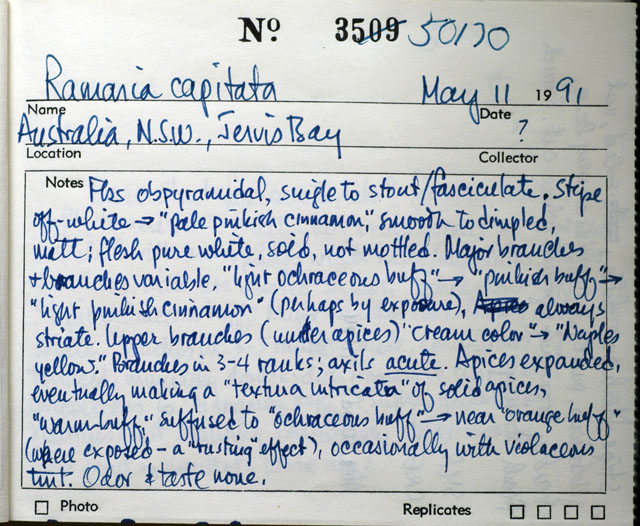 Nº 3509 50170
Ramaria capitata May 11 1991
Name Date
Australia, N.S.W., Jervis Bay ?
Location Collector
Notes Fbs obpyramidal, single to stout/fasciculate. Stipe
off-white → "pale pinkish cinnamon," smooth to dimpled,
matt; flesh pure white, solid, not mottled. Major branches
+ branches variable, "light ochraceous buff" → "pinkish buff" →
"light pinkish cinnamon" (perhaps by exposure), always
striate. Upper branches (under apices) "cream color" → "Naples
yellow." Branches in 3-4 ranks; axils acute. Apices expanded,
eventually making a "textura intricata" of solid apices,
"warm buff," suffused to "ochraceous buff" → near "orange buff"
(where exposed - a "rusting" effect), occasionally with violaceous
tint. Odor & taste none.
Photo Replicates